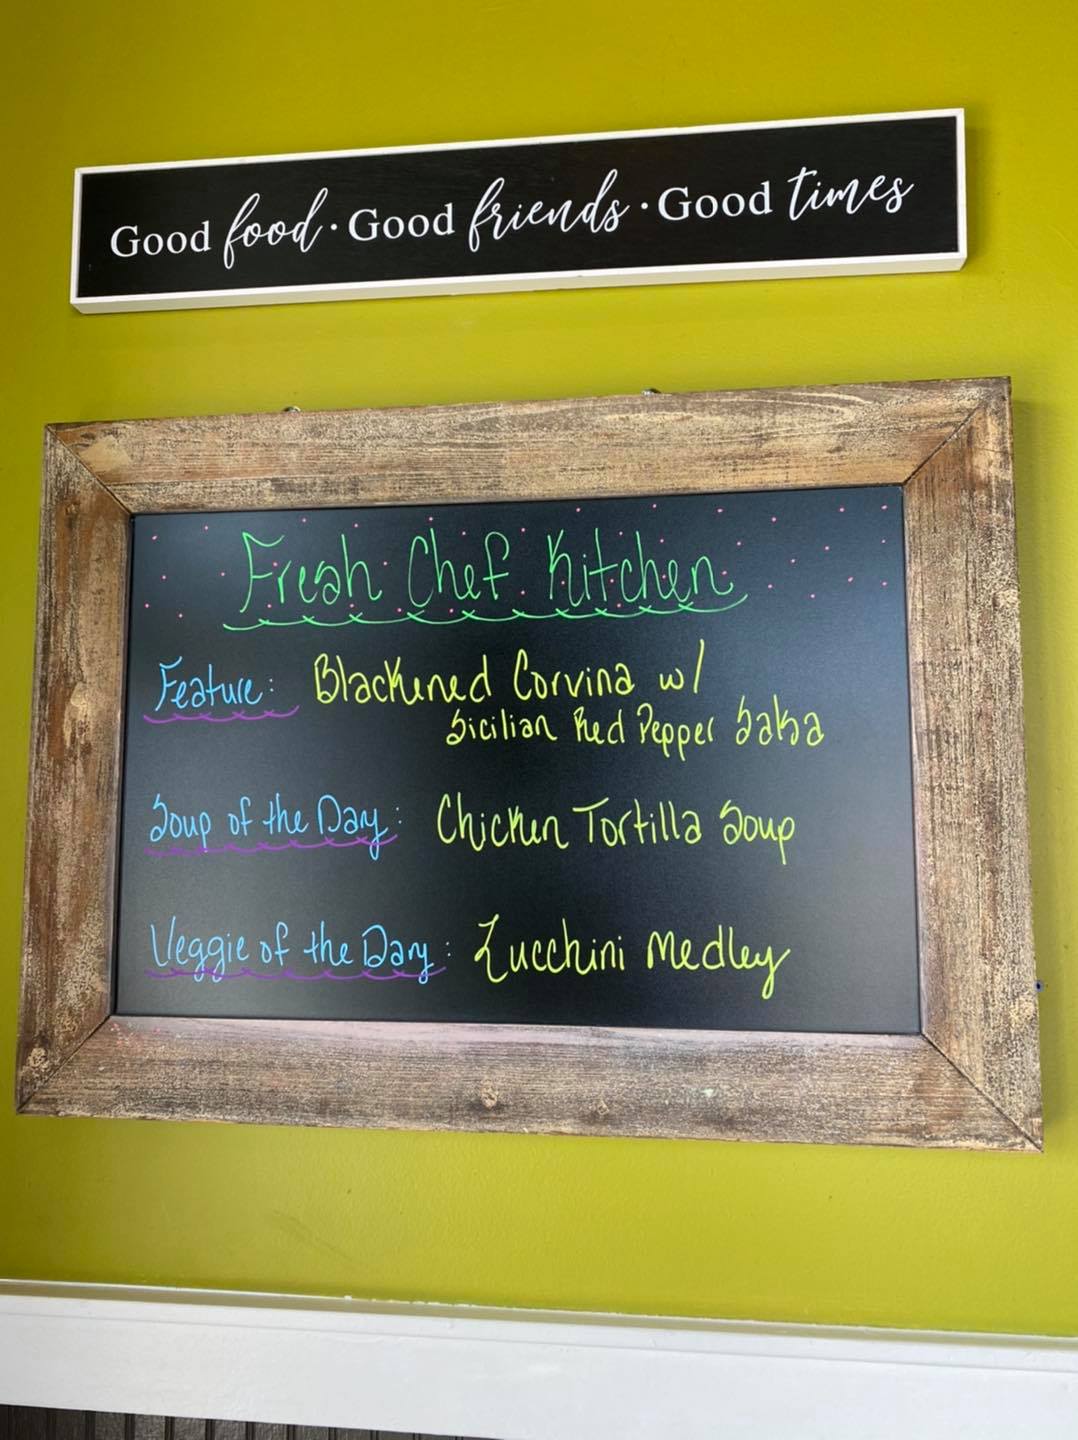 Good food · Good friends · Good times
Fresh Chef Kitchen
Feature: Blackened Corvina w/
Sicilian Red Pepper Salsa
Soup of the Day: Chicken Tortilla Soup
Veggie of the Day: Zucchini Medley